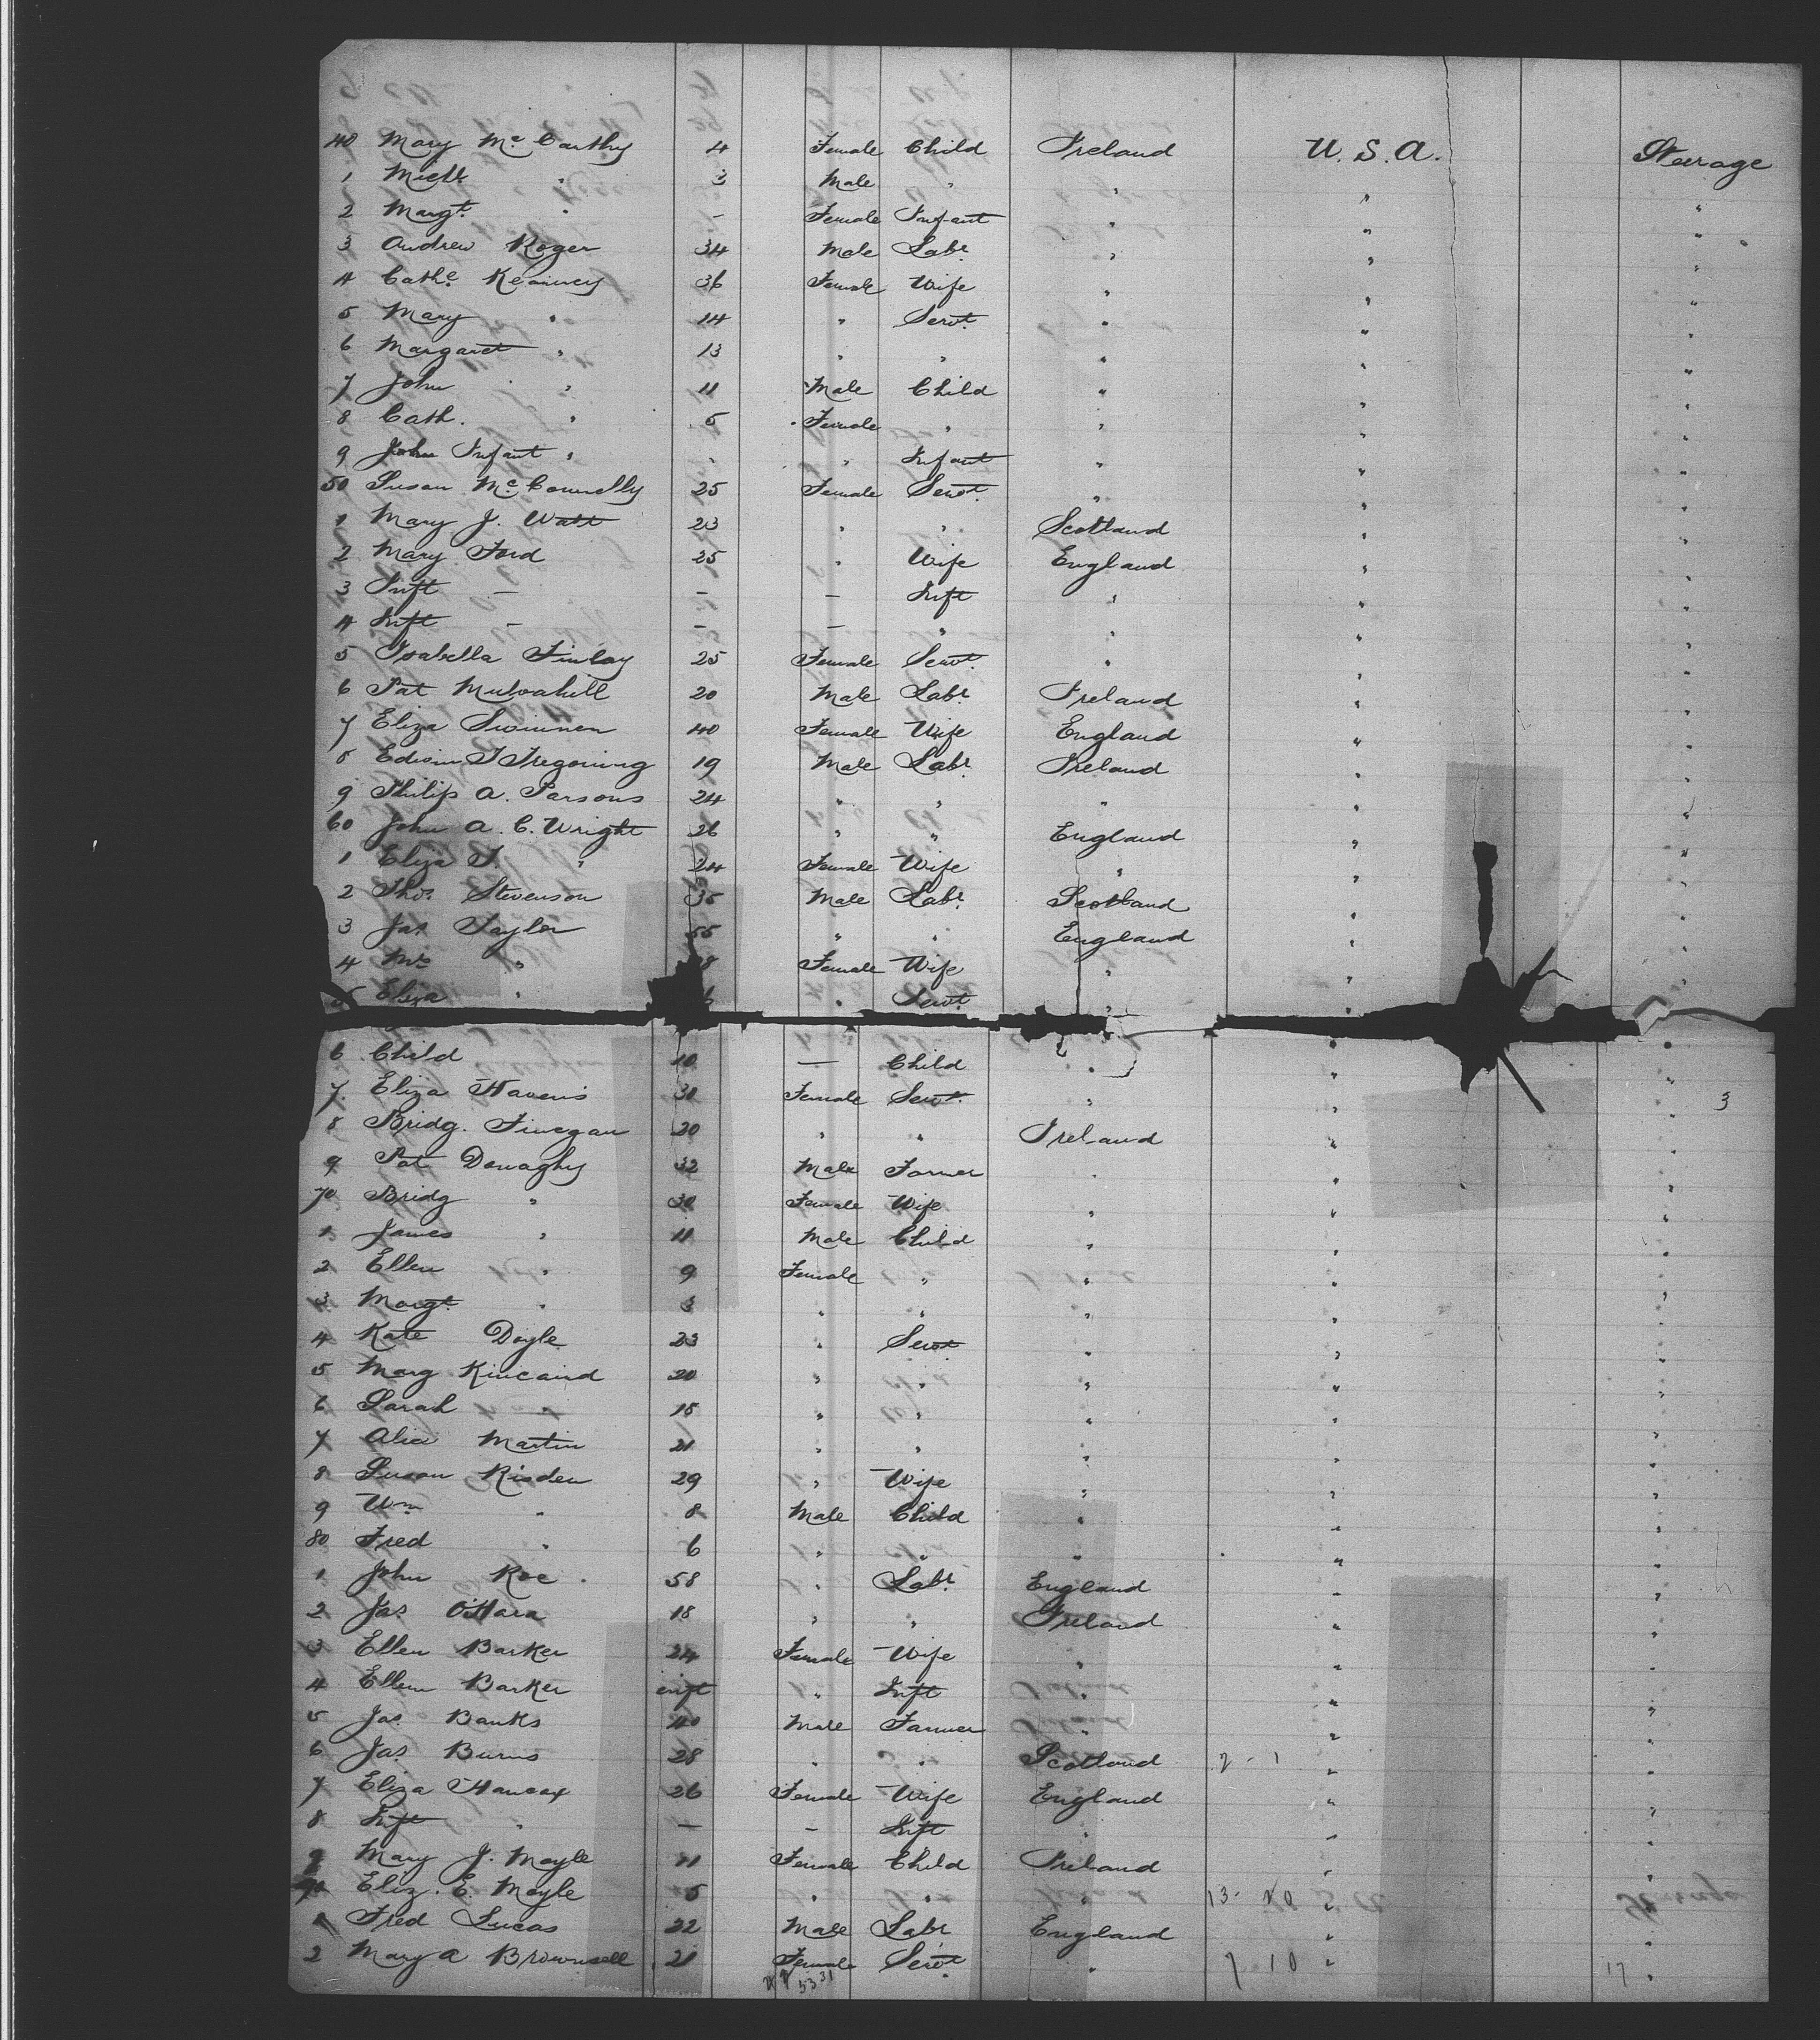 40 Mary Mc Carthy 4 Female Child Ireland U.S.A. Steerage
1 Michl " 3 Male " " " "
2 Margt. " - Female Infant " " "
3 Andrew Roger 34 Male Labr. " " "
4 Cathe. Kearney 36 Female Wife " " "
5 Mary " 14 " Servt. " " "
6 Margaret " 13 " " " " "
7 John " 11 Male Child " " "
8 Cath. " 5 Female " " " "
9 John Infant " " " Infant " " "
50 Susan Mc Connelly 25 Female Servt. " " "
1 Mary J. Watt 23 " " Scotland " "
2 Mary Ford 25 " Wife England " "
3 Inft - - - Inft " " "
4 Inft - - - " " " "
5 Isabella Finlay 25 Female Servt. " " "
6 Pat Mulvahill 20 Male Labr. Ireland " "
7 Eliza Swinnen 40 Female Wife England " "
8 Edwin J Tregoning 19 Male Labr. Ireland " "
9 Philip A. Parsons 24 " " " " "
60 John A. C. Wright 26 " " England " "
1 Eliza J. " 24 Female Wife " " "
2 Thos. Stevenson 35 Male Labr. Scotland " "
3 Jas. Taylor 55 " " England " "
4 Mrs " 8 Female Wife " " "
5 Eliza " 6 " Servt. " " "
6 Child 10 — Child " " "
7. Eliza Havens 30 Female Servt. " " " 3
8 Bridg. Finegan 20 " " Ireland " "
9 Pat Donaghy 32 Male Farmer " " "
70 Bridg " 30 Female Wife " " "
1 James " 11 Male Child " " "
2 Ellen " 9 Female " " " "
3 Margt. " 3 " " " " "
4 Kate Doyle 23 " Servt " " "
5 Marg Kincaird 20 " " " " "
6 Sarah " 15 " " " " "
7 Alice Martin 21 " " " " "
8 Susan Risden 29 " Wife " " "
9 Wm " 8 Male Child " " "
80 Fred " 6 " " " " "
1 John Roe . 58 " Labr. England " "
2 Jas O'Hara 18 " " Ireland " "
3 Ellen Barker 24 Female Wife " " "
4 Ellen Barker inft " Inft " " "
5 Jas. Banks 40 Male Farmer " " "
6 Jas. Burns 28 " " Scotland 2 - 1 " "
7 Eliza Hancox 26 Female Wife England " "
8 Inft " — - Inft " " "
9 Mary J. Moyle 11 Female Child Ireland " "
90 Eliz. E. Moyle 5 " " " 13- "
1 Fred Lucas 22 Male Labr England " "
2 Mary A Brownsell 21 Female Servt " 7 10 " 17 "
53 31